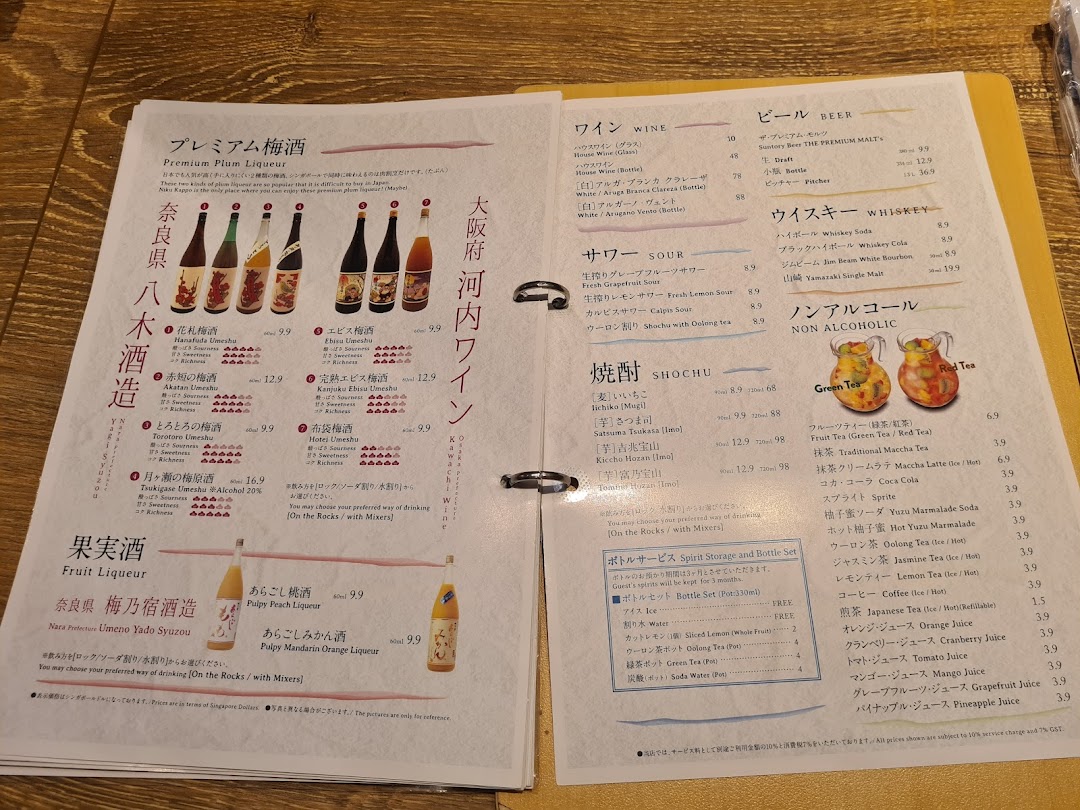 プレミアム梅酒
Premium Plum Liqueur
日本でも人気が高く手に入りにくい2種類の梅酒。シンガポールで同時に味わえるのは肉割烹だけです。(たぶん)
These two kinds of plum liqueur are so popular that it is difficult to buy in Japan.
Niku Kappo is the only place where you can enjoy these premium plum liqueur! (Maybe)
奈良県 八木酒造
Nara Prefecture Yagi Syuzou
大阪府 河内ワイン
Osaka Prefecture Kawachi Wine
1 2 3 4 5 6 7
1 花札梅酒 60ml 9.9
Hanafuda Umeshu
酸っぱさ Sourness
甘さ Sweetness
コク Richness
2 赤短の梅酒 60ml 12.9
Akatan Umeshu
酸っぱさ Sourness
甘さ Sweetness
コク Richness
3 とろとろの梅酒 60ml 9.9
Torotoro Umeshu
酸っぱさ Sourness
甘さ Sweetness
コク Richness
4 月ヶ瀬の梅原酒 60ml 16.9
Tsukigase Umeshu ※Alcohol 20%
酸っぱさ Sourness
甘さ Sweetness
コク Richness
5 エビス梅酒 60ml 9.9
Ebisu Umeshu
酸っぱさ Sourness
甘さ Sweetness
コク Richness
6 完熟エビス梅酒 60ml 12.9
Kanjuku Ebisu Umeshu
酸っぱさ Sourness
甘さ Sweetness
コク Richness
7 布袋梅酒 60ml 9.9
Hotei Umeshu
酸っぱさ Sourness
甘さ Sweetness
コク Richness
※飲み方を[ロック/ソーダ割り/水割り]から
お選びください。
You may choose your preferred way of drinking
[On the Rocks / with Mixers]
果実酒
Fruit Liqueur
奈良県 梅乃宿酒造
Nara Prefecture Umeno Yado Syuzou
あらごし桃酒 60ml 9.9
Pulpy Peach Liqueur
あらごしみかん酒 60ml 9.9
Pulpy Mandarin Orange Liqueur
※飲み方を[ロック/ソーダ割り/水割り]からお選びください。
You may choose your preferred way of drinking [On the Rocks / with Mixers]
●表示価格はシンガポールドルになっております。/Prices are in terms of Singapore Dollars. ●写真と異なる場合がございます。/ The pictures are only for reference.
ワイン WINE
ハウスワイン (グラス) 10
House Wine (Glass)
ハウスワイン 48
House Wine (Bottle)
[白]アルガ・ブランカ クラレーザ 78
White / Aruga Branca Clareza (Bottle)
[白]アルガーノ・ヴェント 88
White / Arugano Vento (Bottle)
サワー SOUR
生搾りグレープフルーツサワー 8.9
Fresh Grapefruit Sour
生搾りレモンサワー Fresh Lemon Sour 8.9
カルピスサワー Calpis Sour 8.9
ウーロン割り Shochu with Oolong tea 8.9
焼酎 SHOCHU
[麦]いいちこ 90ml 8.9 720ml 68
Iichiko [Mugi]
[芋]さつま司 90ml 9.9 720ml 88
Satsuma Tsukasa [Imo]
[芋]吉兆宝山 90ml 12.9 720ml 98
Kiccho Hozan [Imo]
[芋]富乃宝山 90ml 12.9 720ml 98
Tomino Hozan [Imo]
※飲み方を[ロック/ソーダ割り/水割り]からお選びください。
You may choose your preferred way of drinking
[On the Rocks / with Mixers]
ボトルサービス Spirit Storage and Bottle Set
ボトルのお預かり期間は3ヶ月とさせていただきます。
Guest's spirits will be kept for 3 months.
ボトルセット Bottle Set (Pot:330ml)
アイス Ice FREE
割り水 Water FREE
カットレモン (1個) Sliced Lemon (Whole Fruit) 2
ウーロン茶ポット Oolong Tea (Pot) 4
緑茶ポット Green Tea (Pot) 4
炭酸 (ポット) Soda Water (Pot) 4
ビール BEER
ザ・プレミアム・モルツ
Suntory Beer THE PREMIUM MALT's
生 Draft 9.9
小瓶 Bottle 12.9
ピッチャー Pitcher 36.9
ウイスキー WHISKEY
ハイボール Whiskey Soda 8.9
ブラックハイボール Whiskey Cola 8.9
ジムビーム Jim Beam White Bourbon 30ml 8.9
山崎 Yamazaki Single Malt 30ml 19.9
ノンアルコール
NON ALCOHOLIC
Green Tea
Red Tea
フルーツティー (緑茶/紅茶) 6.9
Fruit Tea (Green Tea / Red Tea)
抹茶 Traditional Maccha Tea
抹茶クリームラテ Maccha Latte (Ice / Hot) 6.9
コカ・コーラ Coca Cola 3.9
スプライト Sprite 3.9
柚子蜜ソーダ Yuzu Marmalade Soda 3.9
ホット柚子蜜 Hot Yuzu Marmalade 3.9
ウーロン茶 Oolong Tea (Ice / Hot) 3.9
ジャスミン茶 Jasmine Tea (Ice / Hot) 3.9
レモンティー Lemon Tea (Ice / Hot) 3.9
コーヒー Coffee (Ice / Hot) 3.9
煎茶 Japanese Tea (Ice / Hot)(Refillable) 1.5
オレンジ・ジュース Orange Juice 3.9
クランベリー・ジュース Cranberry Juice 3.9
トマト・ジュース Tomato Juice 3.9
マンゴー・ジュース Mango Juice 3.9
グレープフルーツ・ジュース Grapefruit Juice 3.9
パイナップル・ジュース Pineapple Juice 3.9
●当店では、サービス料として別途ご利用金額の10%と消費税7%をいただいております。/All prices shown are subject to 10% service charge and 7% GST.